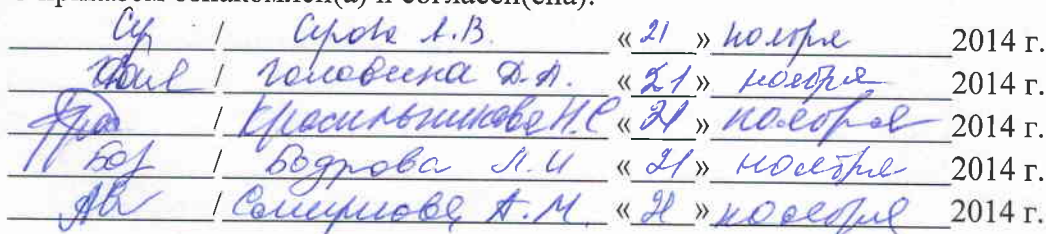 ознакомлен(а) и согласен(сна).
/ Сурова А.В. «21» ноября 2014 г.
/ Головина Д.А. «21» ноября 2014 г.
/ Красильникова Н.С «21» ноября 2014 г.
Бод / Бодрова Л.И «21» ноября 2014 г.
/ Смирнова А.М. «21» ноября 2014 г.